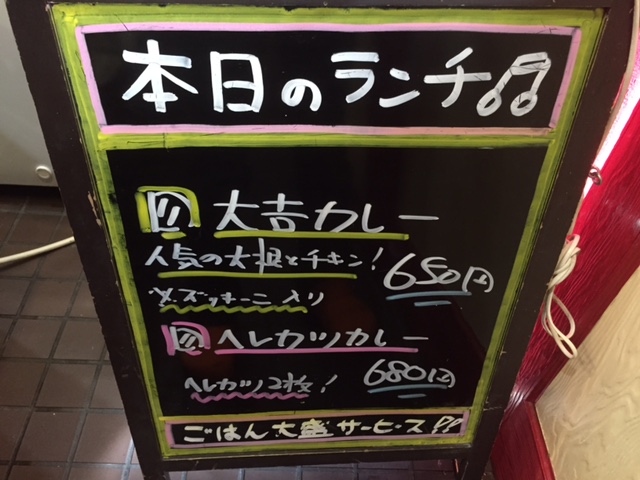 本日のランチ♫
大吉カレー
人気の大根とチキン! 650円
ズッキーニ入り
ヘレカツカレー
ヘレカツ2枚! 680円
ごはん大盛サービス!!